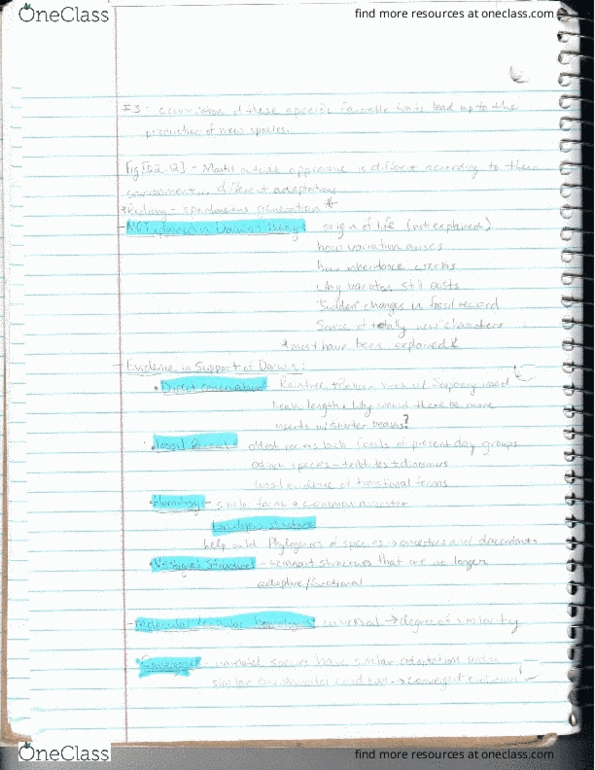 OneClass
find more resources at oneclass.com
#3 - accumulation of these specific favorable traits lead up to the
production of new species.
Fig [22-12] - outside appearance is different according to their
environment. different adaptations
spontaneous generation *
- NOT explained in Darwin's theory: origin of life (not explained)
how variation arises
how inheritance works
why variation still exists
"Sudden" changes in fossil record
Source of totally new characters
* most have been explained *
- Evidence in Support of Darwin:
• Direct observations
beak length. Why would there be more
insects w/ shorter beaks?
• Fossil Record - oldest rocks lack fossils of present day groups
extinct species - trilobites + dinosaurs
fossil evidence of transitional forms
• Homology - similar forms → common ancestor
homologous structures
help build Phylogenies of species → ancestors and descendants
• Vestigial Structures - remnant structures that are no longer
adaptive/functional
- Molecular/cellular homologies: universal → degree of similarity
• Convergence - unrelated species have similar adaptations under
similar environmental conditions → convergent evolution
OneClass
find more resources at oneclass.com